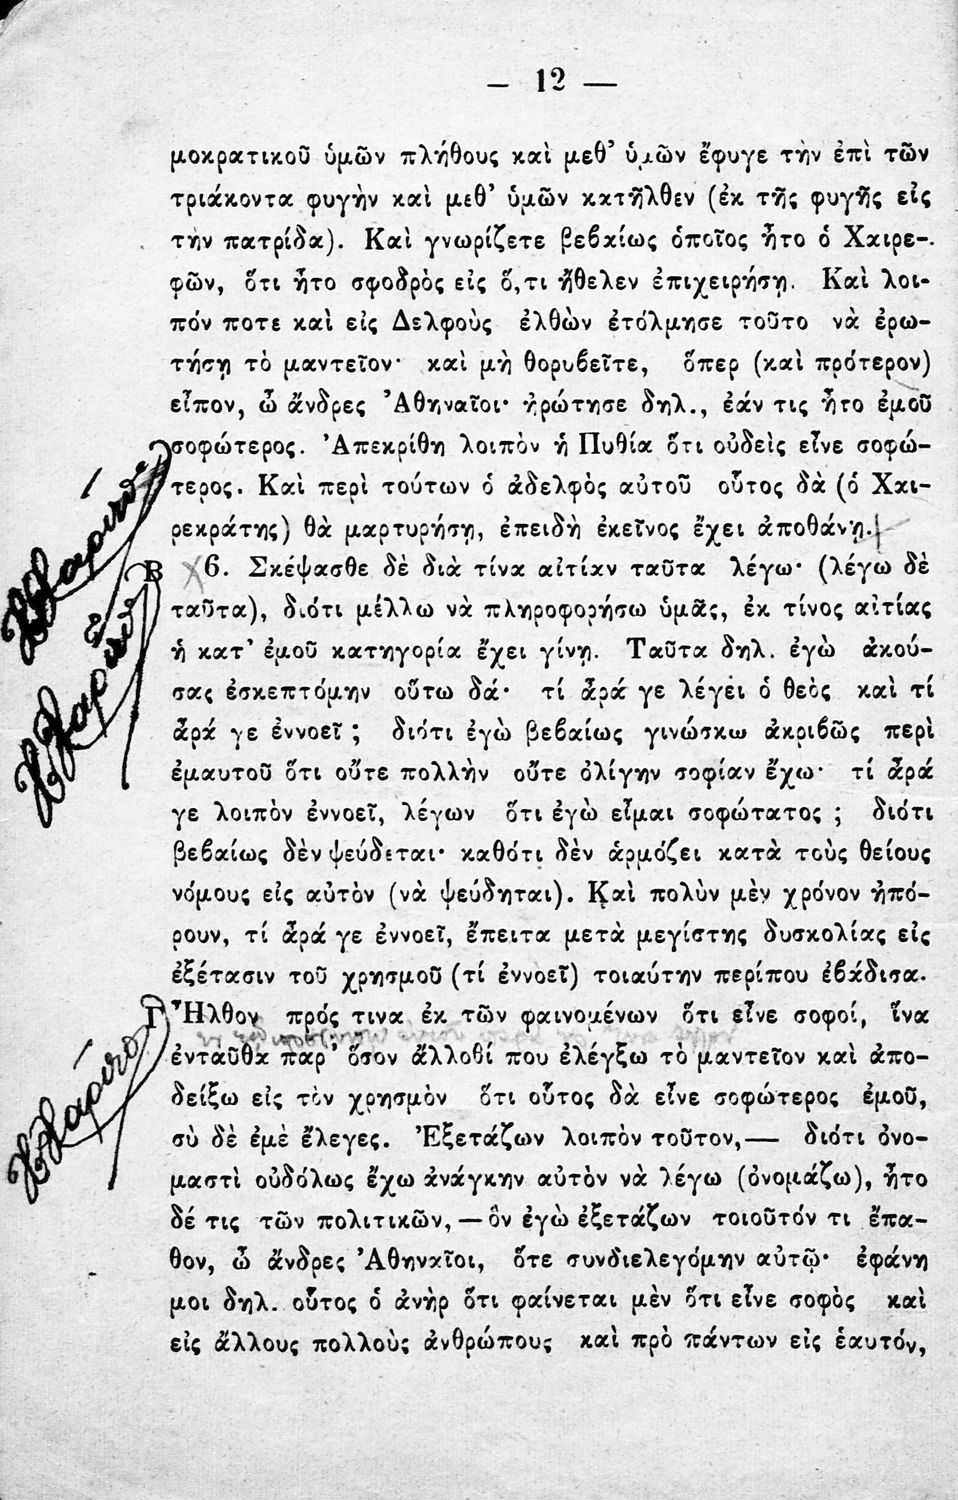 — 12 —
μοκρατικοῦ ὑμῶν πλήθους καὶ μεθ' ὑμῶν ἔφυγε τὴν ἐπὶ τῶν
τριάκοντα φυγὴν καὶ μεθ' ὑμῶν κατῆλθεν (ἐκ τῆς φυγῆς εἰς
τὴν πατρίδα). Καὶ γνωρίζετε βεβαίως ὁποῖος ἦτο ὁ Χαιρε-
φῶν, ὅτι ἦτο σφοδρὸς εἰς ὅ,τι ἤθελεν ἐπιχειρήσῃ. Καὶ λοι-
πόν ποτε καὶ εἰς Δελφοὺς ἐλθὼν ἐτόλμησε τοῦτο νὰ ἐρω-
τήσῃ τὸ μαντεῖον· καὶ μὴ θορυβεῖτε, ὅπερ (καὶ πρότερον)
εἶπον, ὦ ἄνδρες Ἀθηναῖοι· ἠρώτησε δηλ., ἐάν τις ἦτο ἐμοῦ
σοφώτερος. Ἀπεκρίθη λοιπὸν ἡ Πυθία ὅτι οὐδεὶς εἶνε σοφώ-
τερος. Καὶ περὶ τούτων ὁ ἀδελφὸς αὐτοῦ οὗτος δὰ (ὁ Χαι-
ρεκράτης) θὰ μαρτυρήσῃ, ἐπειδὴ ἐκεῖνος ἔχει ἀποθάνῃ.
Β 6. Σκέψασθε δὲ διὰ τίνα αἰτίαν ταῦτα λέγω· (λέγω δὲ
ταῦτα), διότι μέλλω νὰ πληροφορήσω ὑμᾶς, ἐκ τίνος αἰτίας
ἡ κατ' ἐμοῦ κατηγορία ἔχει γίνῃ. Ταῦτα δηλ. ἐγὼ ἀκού-
σας ἐσκεπτόμην οὕτω δά· τί ἆρά γε λέγει ὁ θεὸς καὶ τί
ἆρά γε ἐννοεῖ; διότι ἐγὼ βεβαίως γινώσκω ἀκριβῶς περὶ
ἐμαυτοῦ ὅτι οὔτε πολλὴν οὔτε ὀλίγην σοφίαν ἔχω· τί ἆρά
γε λοιπὸν ἐννοεῖ, λέγων ὅτι ἐγὼ εἶμαι σοφώτατος; διότι
βεβαίως δὲν ψεύδεται· καθότι δὲν ἁρμόζει κατὰ τοὺς θείους
νόμους εἰς αὐτὸν (νὰ ψεύδηται). Καὶ πολὺν μὲν χρόνον ἠπό-
ρουν, τί ἆρά γε ἐννοεῖ, ἔπειτα μετὰ μεγίστης δυσκολίας εἰς
ἐξέτασιν τοῦ χρησμοῦ (τί ἐννοεῖ) τοιαύτην περίπου ἐβάδισα.
Γ Ἦλθον πρός τινα ἐκ τῶν φαινομένων ὅτι εἶνε σοφοί, ἵνα
ἐνταῦθα παρ' ὅσον ἄλλοθί που ἐλέγξω τὸ μαντεῖον καὶ ἀπο-
δείξω εἰς τὸν χρησμὸν ὅτι οὗτος δὰ εἶνε σοφώτερος ἐμοῦ,
σὺ δὲ ἐμὲ ἔλεγες. Ἐξετάζων λοιπὸν τοῦτον,— διότι ὀνο-
μαστὶ οὐδόλως ἔχω ἀνάγκην αὐτὸν νὰ λέγω (ὀνομάζω), ἦτο
δέ τις τῶν πολιτικῶν,—ὃν ἐγὼ ἐξετάζων τοιοῦτόν τι ἔπα-
θον, ὦ ἄνδρες Ἀθηναῖοι, ὅτε συνδιελεγόμην αὐτῷ· ἐφάνη
μοι δηλ. οὗτος ὁ ἀνὴρ ὅτι φαίνεται μὲν ὅτι εἶνε σοφὸς καὶ
εἰς ἄλλους πολλοὺς ἀνθρώπους καὶ πρὸ πάντων εἰς ἑαυτόν,